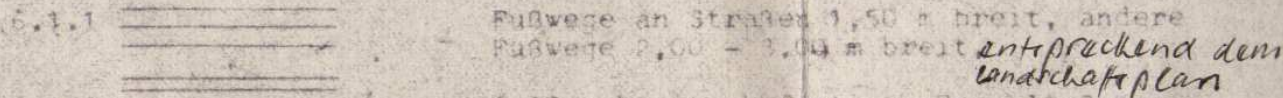 6.1.1 Fußwege an Straßen 1,50 m breit, andere
Fußwege 2,00 - 3,00 m breit entsprechend dem
Landschaftsplan